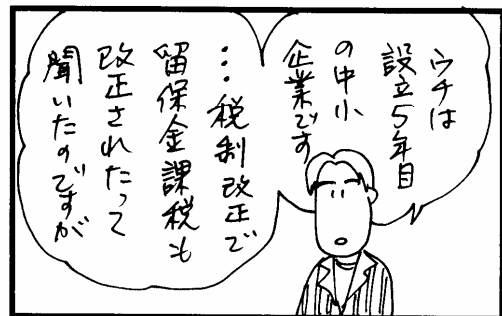 ウチは
設立5年目
の中小
企業です
…税制改正で
留保金課税も
改正されたって
聞いたのですが